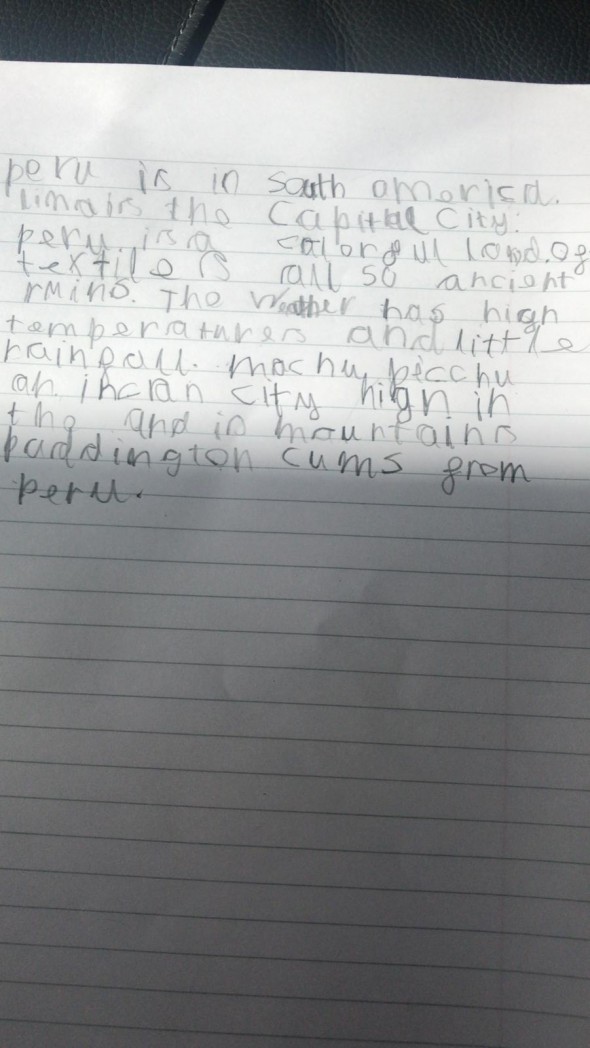 peru is in south amarica.
lima is the Capital City.
peru is a calorful land. of
textile is all so ancient
rmins. The Weather has high
temperatures and little
rainfall. machu picchu
an incan city high in
the andin mountains
paddington cums from
peru.